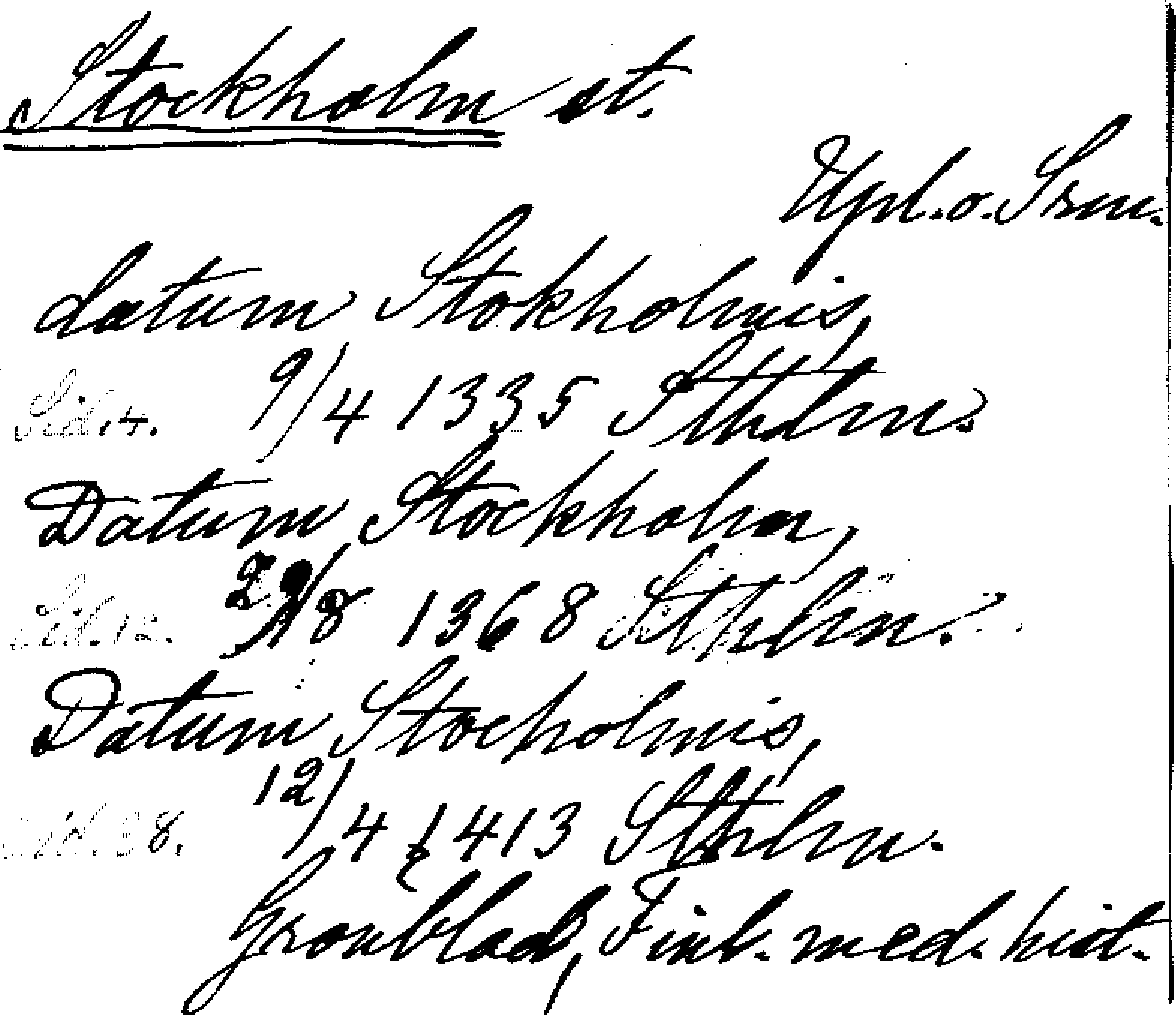 Stockholm st.
Upl. o. Srm.
datum Stokholmis,
Sid. 4. 9/4 1335 Sthlm.
Datum Stockholm,
Sid. 12. 29/8 1368 Sthlm.
Datum Stocholmis,
38. 12/4 1413 Sthlm.
Gronblad, Finl. med. hist.